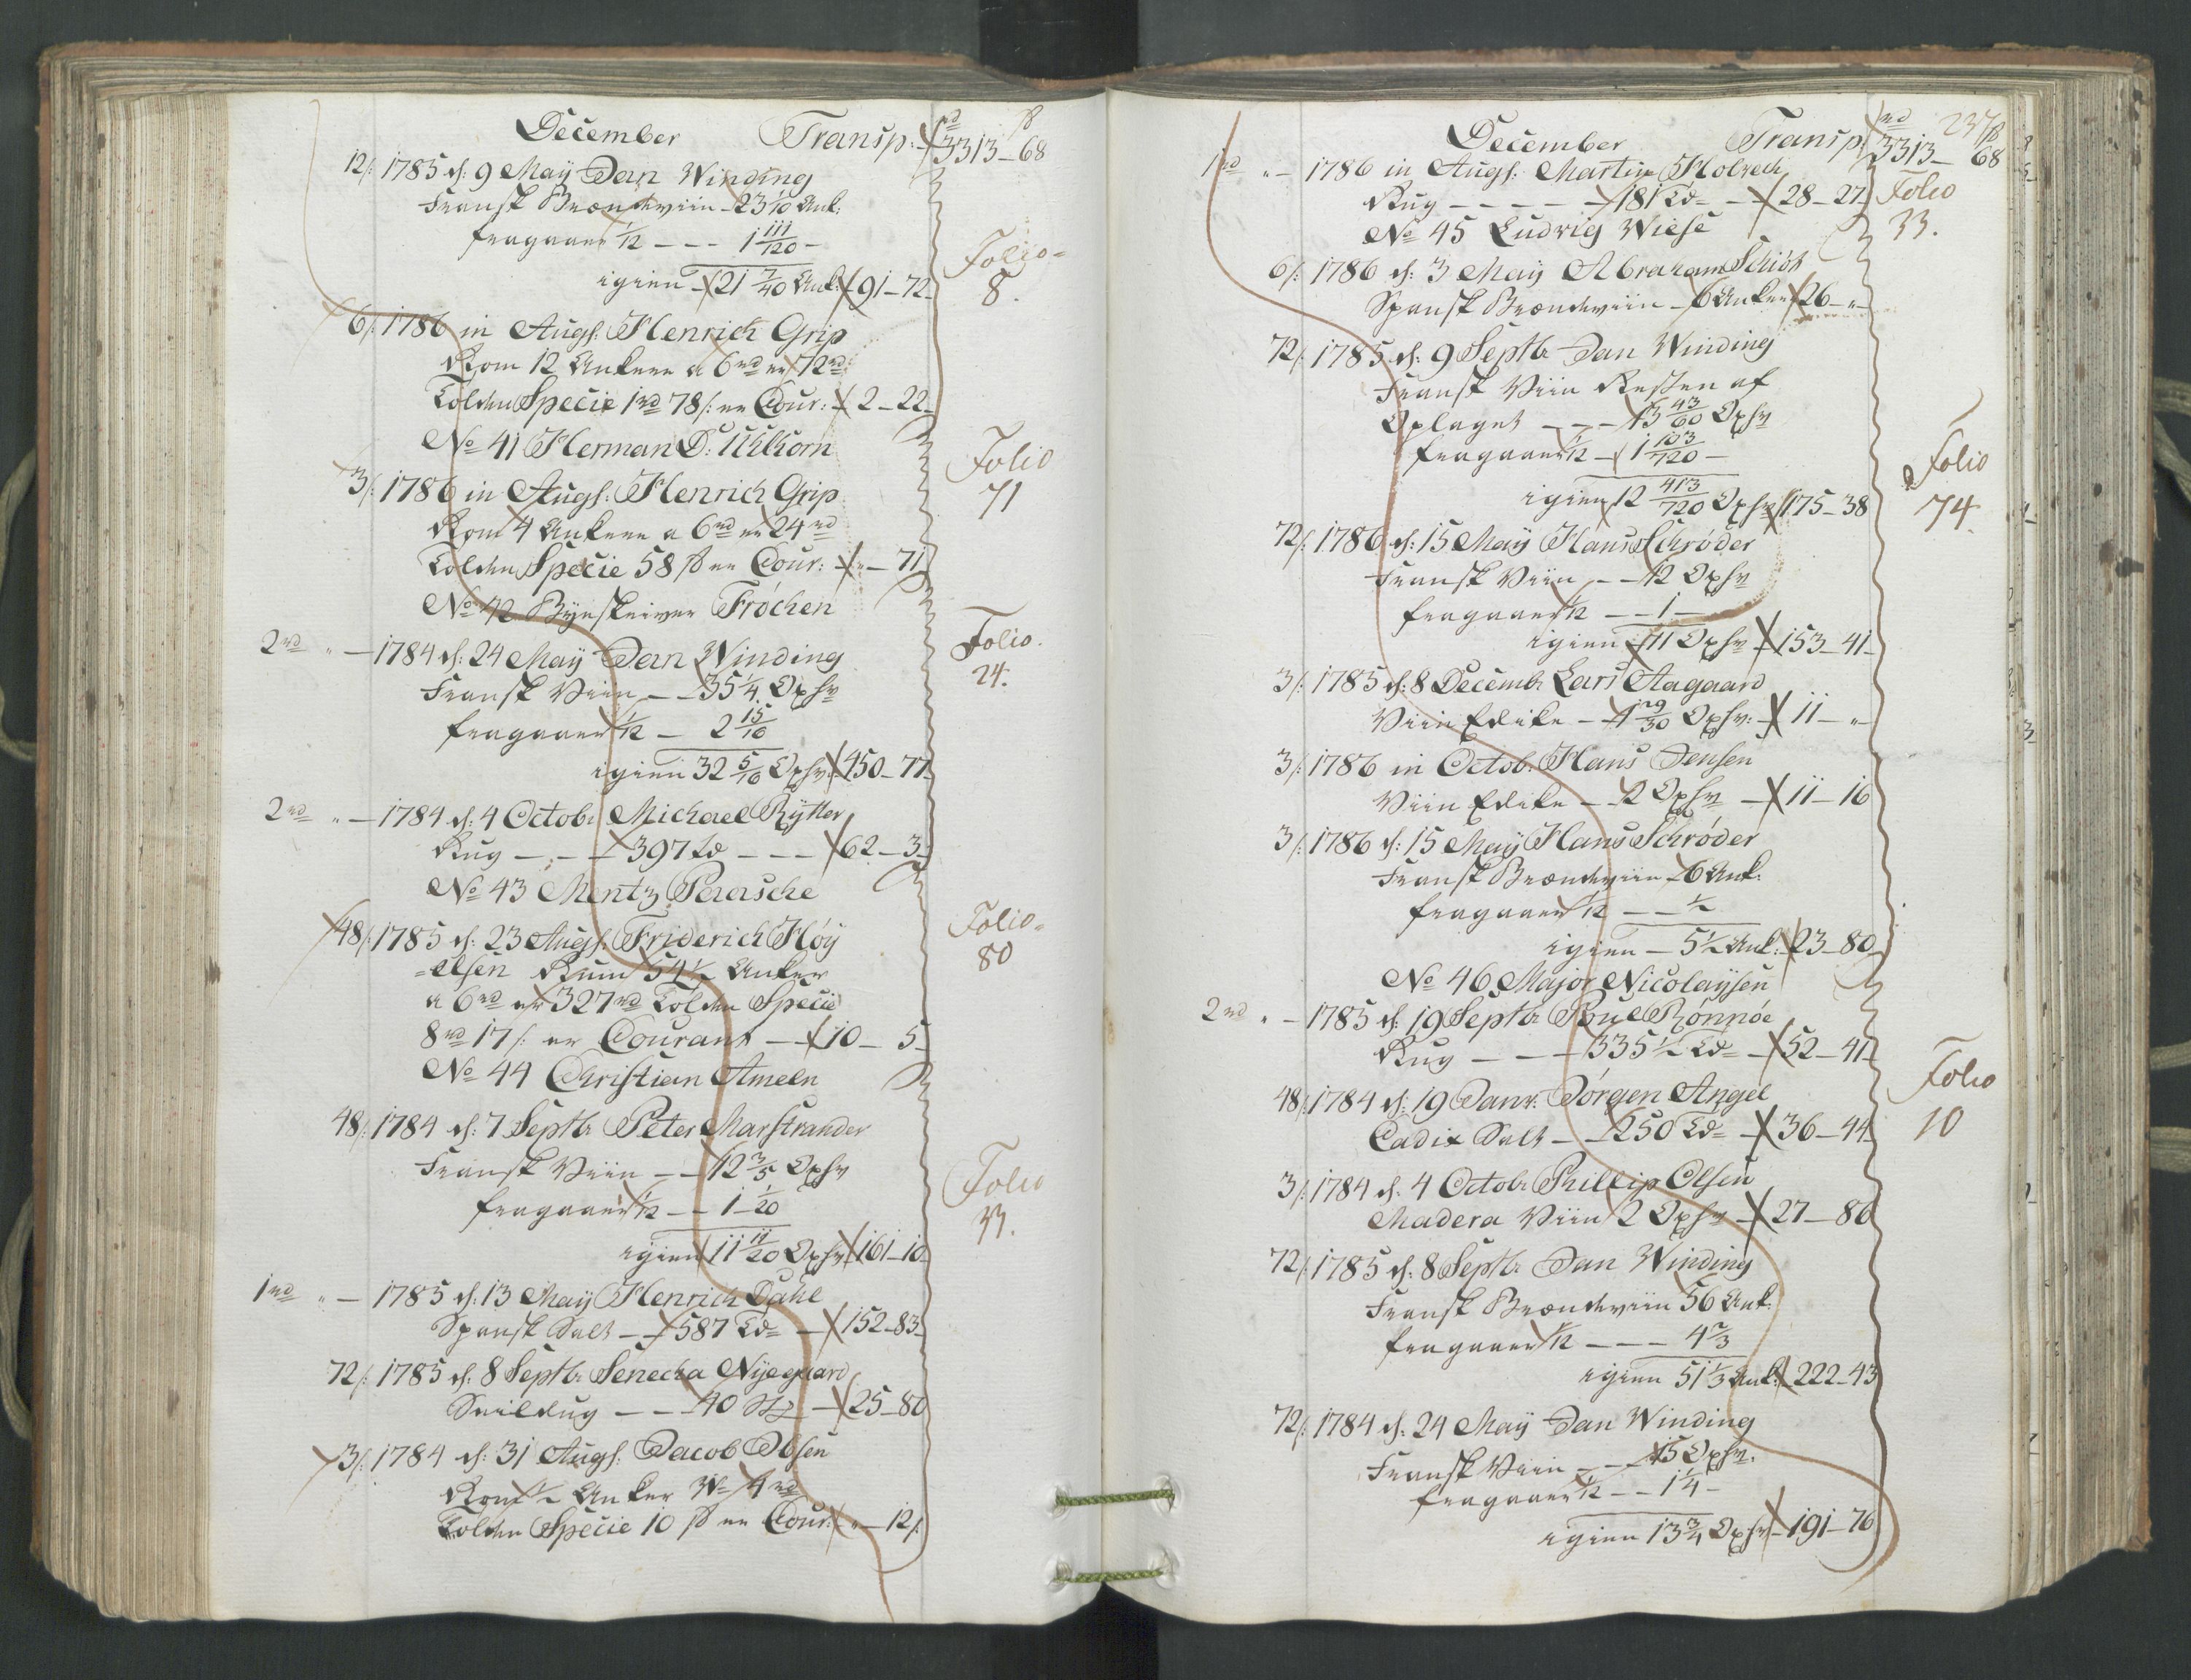 December Transp: rd 3313 - 68
12/: 1785 d: 9 May Dan Winding
Fransk Brændeviin - 23 1/10 Ank:
fragaaer 1/12 - - - 1 111/120 -
igien - 21 7/40 Ank: 91 - 72
Folio
8.
6/: 1786 in Augs: Henrich Grip
Rom 12 Ankere a 6 rd er 72 rd
Tolden Specie 1 rd 78/: er Cour: 2 - 22
No 41 Herman D:
Folio
71
3/: 1786 in Augs: Henrich Grip
Rom 4 Ankere a 6 rd er 24 rd
Tolden Specie 58 ß er Cour: " - 71
No 42 Byeskriver Fröchen
Folio.
24.
2 rd " - 1784 d: 24 May Dan Winding
Fransk Viin - - 35 1/4 Oxhv
fragaaer 1/12 - 2 15/16
igien 32 5/16 Oxhv 450 - 77
2 rd " - 1784 d: 4 Octobr Michael Rytter
Rug - - - 397 td - - - 62 - 3
No 43 Mentz
Folio
80
48/: 1785 d: 23 Augs: Friderich Höy
=elsen Rum 54 1/2 Anker
a 6 rd er 327 rd Tolden Specie
8 rd 17/: er Courant - - 10 - 5
No 44 Christian Ameln
48/: 1784 d: 7 Septbr Peter Marstrander
Fransk Viin - - 12 3/5 Oxhv
fragaaer 1/12 - - 1 1/20
igien 11 11/20 Oxhv 161 - 10
Folio
33.
1 rd " - 1785 d: 13 May Henrich Dahl
Spansk Salt - - 587 Td - 152 - 83
72/: 1785 d: 8 Septbr Senecka Nyegaard
Seildug - - 40 St - 25 - 80
3/: 1784 d: 31 Augs: Jacob Olsen
Rom 1/2 Anker 4 rd
Tolden Specie 10 ß er Cour: " - 12/:
237
December Transp: rd 3313 - ß 68
1 rd " - 1786 in Augs: Martin Holbech
Rug - - - - 181 Td - 28 - 27
No 45 Ludvig Wiese
Folio
33.
6/: 1786 d: 3 May Abraham Schiöt
Spansk Brændeviin - 6 Anker 26 - "
72/: 1785 d: 9 Septbr Dan Winding
Fransk Viin Resten af
Oplaget - - - 13 43/60 Oxhv
fragaaer 1/12 - 1 103/720 -
igien 12 413/720 Oxhv 175 - 38
Folio
74.
72/: 1786 d: 15 May Hans Schröder
Fransk Viin - - 12 Oxhv
fragaaer 1/12 - - 1 -
igien - 11 Oxhv 153 - 41
3/: 1785 d: 8 Decembr Lars Aagaard
Viin Edike - 1 29/30 Oxhv: 11 - "
3/: 1786 in Octob: Hans Jensen
Viin Edike - 2 Oxhv - 11 - 16
3/: 1786 d: 15 May Hans Schröder
Fransk Brændeviin - 6 Ank:
fragaaer 1/12 - - 1/2
igien - 5 1/2 Ank: 23 - 80
No 46 Major Nicolaysen
2 rd " - 1785 d: 19 Septbr Poul Rönnöe
Rug - - - 335 1/2 Td - 52 - 41
Folio
10
48/: 1784 d: 19 Janr: Jörgen Angel
Cadix Salt - - 250 Td - 36 - 44
3/: 1784 d: 4 Octobr Phillip Olsen
Madera Viin 2 Oxhv - 27 - 80
72/: 1785 d: 8 Septbr Dan Winding
Fransk Brændeviin 56 Ank:
fragaaer 1/12 - - - 4 2/3
igien 51 1/3 Ank: 222 - 43
72/: 1784 d: 24 May Dan Winding
Fransk Viin - - - 15 Oxhv.
fragaaer 1/12 - - 1 1/4 -
igien 13 3/4 Oxhv 191 - 76